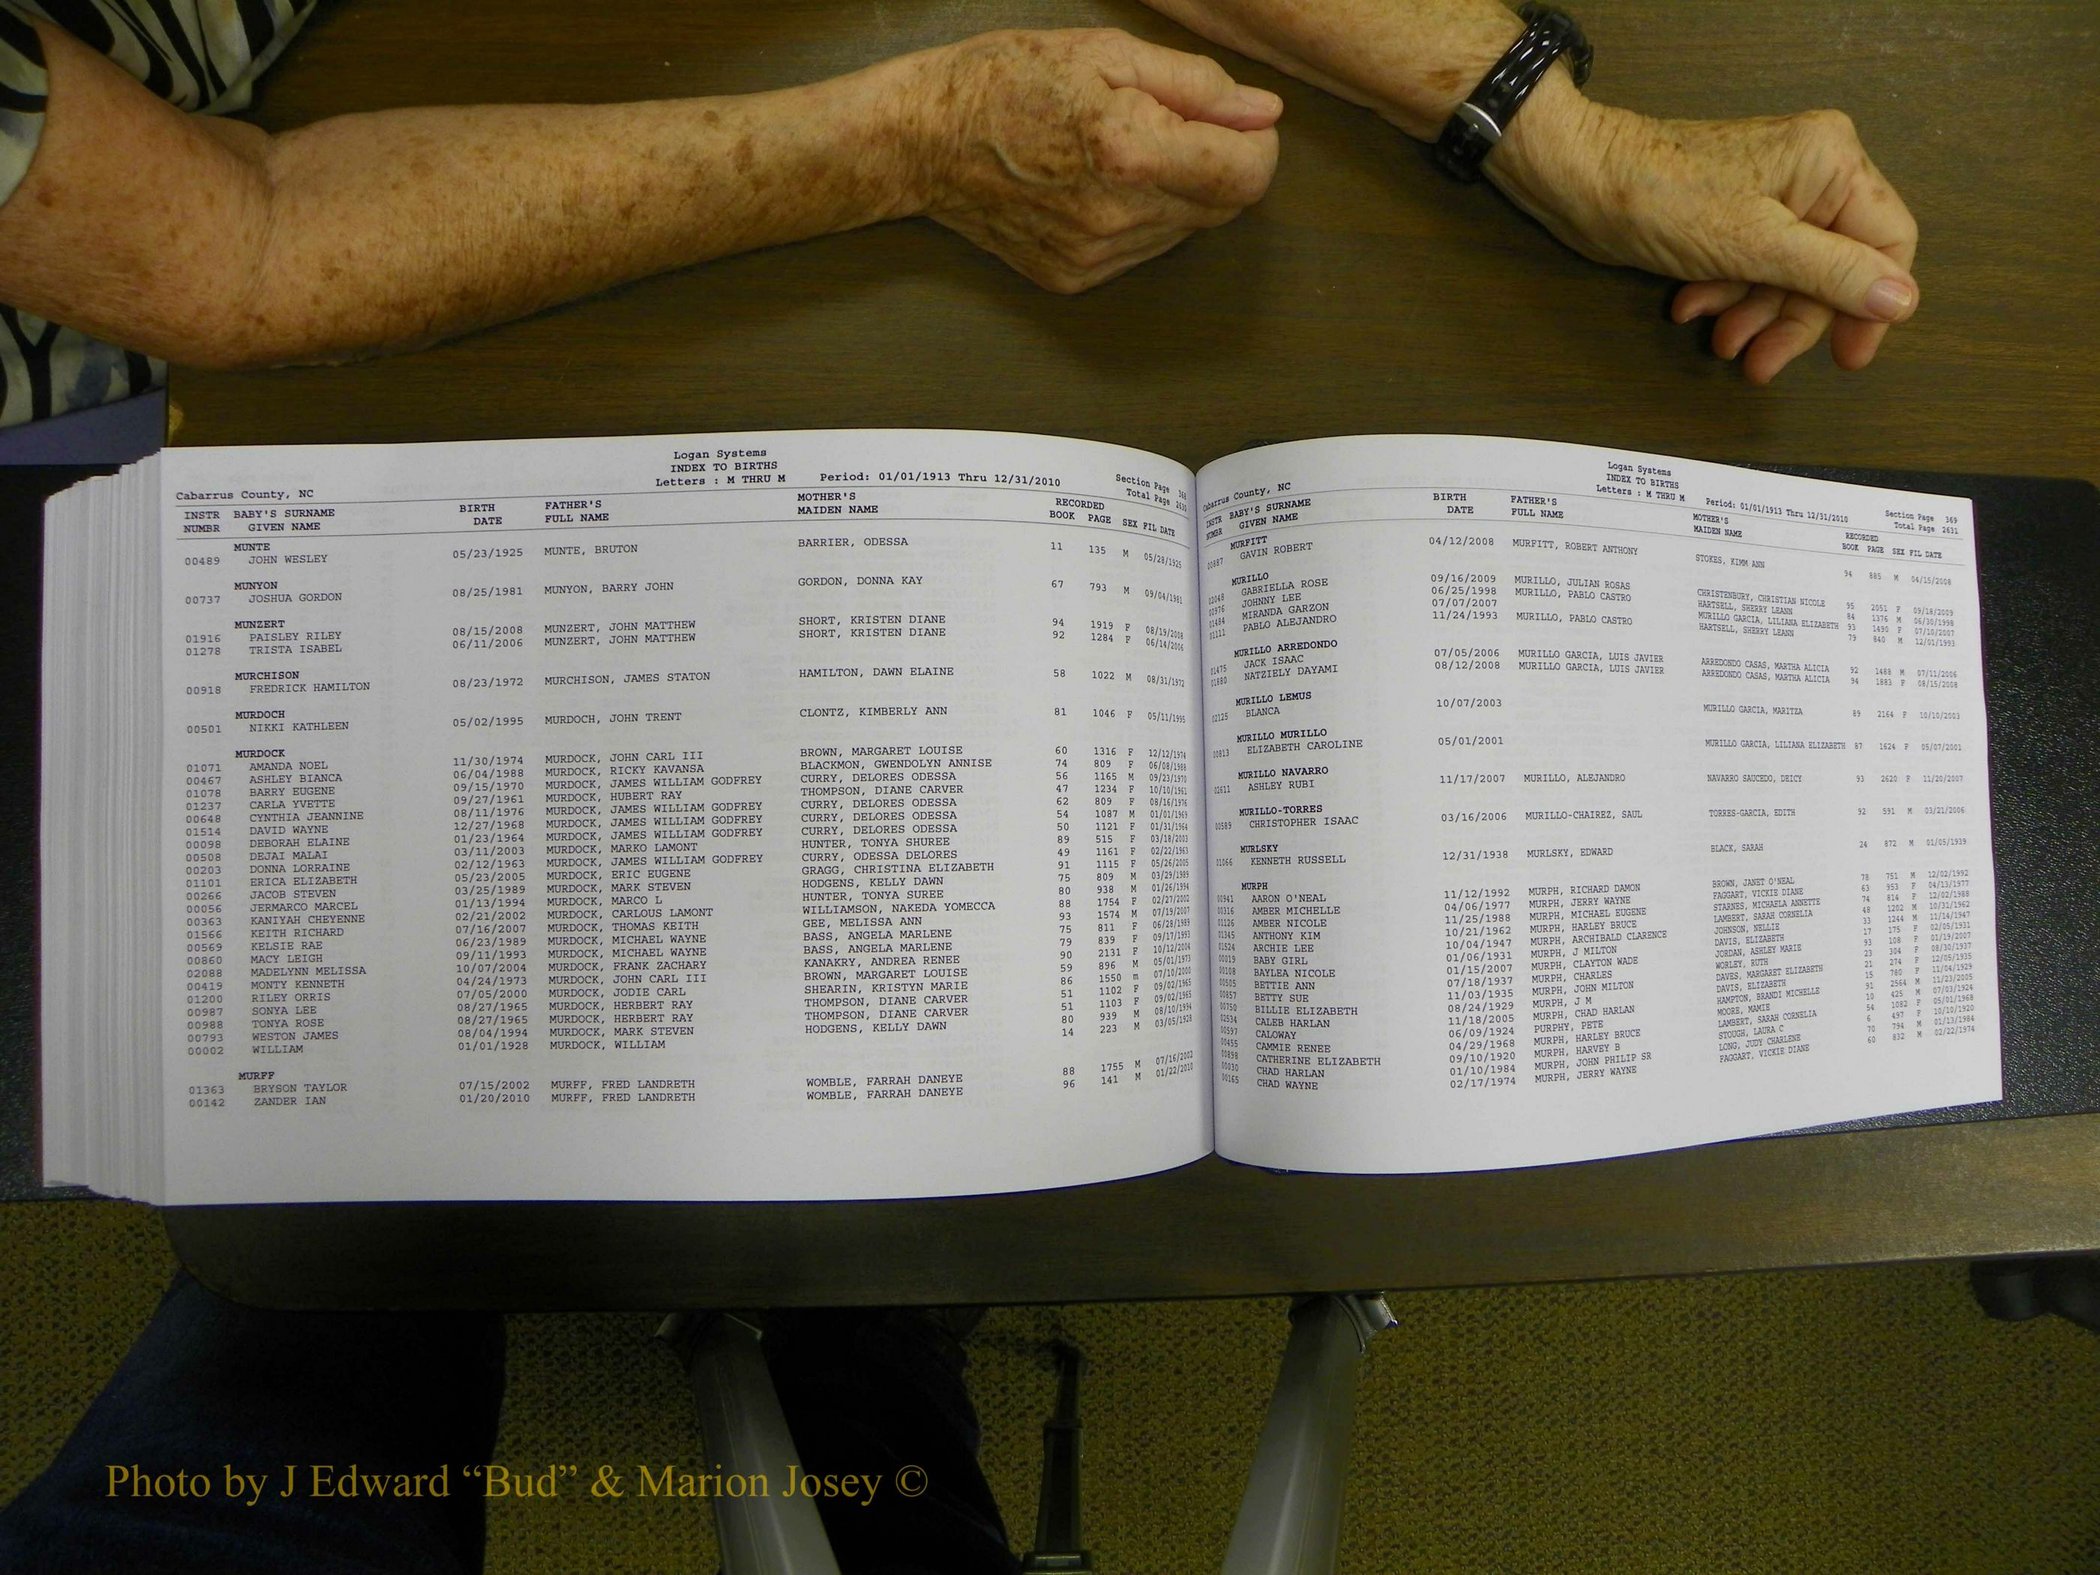 Logan Systems
INDEX TO BIRTHS
Letters : M THRU M Period: 01/01/1913 Thru 12/31/2010
Section Page 368
Total Page 2630
Cabarrus County, NC
INSTR BABY'S SURNAME BIRTH FATHER'S MOTHER'S RECORDED
NUMBR GIVEN NAME DATE FULL NAME MAIDEN NAME BOOK PAGE SEX FIL DATE
MUNTE
00489 JOHN WESLEY 05/23/1925 MUNTE, BRUTON BARRIER, ODESSA 11 135 M 05/28/1925
MUNYON
00737 JOSHUA GORDON 08/25/1981 MUNYON, BARRY JOHN GORDON, DONNA KAY 67 793 M 09/04/1981
MUNZERT
01916 PAISLEY RILEY 08/15/2008 MUNZERT, JOHN MATTHEW SHORT, KRISTEN DIANE 94 1919 F 08/19/2008
01278 TRISTA ISABEL 06/11/2006 MUNZERT, JOHN MATTHEW SHORT, KRISTEN DIANE 92 1284 F 06/14/2006
MURCHISON
00918 FREDRICK HAMILTON 08/23/1972 MURCHISON, JAMES STATON HAMILTON, DAWN ELAINE 58 1022 M 08/31/1972
MURDOCH
00501 NIKKI KATHLEEN 05/02/1995 MURDOCH, JOHN TRENT CLONTZ, KIMBERLY ANN 81 1046 F 05/11/1995
MURDOCK
01071 AMANDA NOEL 11/30/1974 MURDOCK, JOHN CARL III BROWN, MARGARET LOUISE 60 1316 F 12/12/1974
00467 ASHLEY BIANCA 06/04/1988 MURDOCK, RICKY KAVANSA BLACKMON, GWENDOLYN ANNISE 74 809 F 06/08/1988
01078 BARRY EUGENE 09/15/1970 MURDOCK, JAMES WILLIAM GODFREY CURRY, DELORES ODESSA 56 1165 M 09/23/1970
01237 CARLA YVETTE 09/27/1961 MURDOCK, HUBERT RAY THOMPSON, DIANE CARVER 47 1234 F 10/10/1961
00648 CYNTHIA JEANNINE 08/11/1976 MURDOCK, JAMES WILLIAM GODFREY CURRY, DELORES ODESSA 62 809 F 08/16/1976
01514 DAVID WAYNE 12/27/1968 MURDOCK, JAMES WILLIAM GODFREY CURRY, DELORES ODESSA 54 1087 M 01/01/1969
00098 DEBORAH ELAINE 01/23/1964 MURDOCK, JAMES WILLIAM GODFREY CURRY, DELORES ODESSA 50 1121 F 01/31/1964
00508 DEJAI MALAI 03/11/2003 MURDOCK, MARKO LAMONT HUNTER, TONYA SHUREE 89 515 F 03/18/2003
00203 DONNA LORRAINE 02/12/1963 MURDOCK, JAMES WILLIAM GODFREY CURRY, ODESSA DELORES 49 1161 F 02/22/1963
01101 ERICA ELIZABETH 05/23/2005 MURDOCK, ERIC EUGENE GRAGG, CHRISTINA ELIZABETH 91 1115 F 05/26/2005
00266 JACOB STEVEN 03/25/1989 MURDOCK, MARK STEVEN HODGENS, KELLY DAWN 75 809 M 03/29/1989
00056 JERMARCO MARCEL 01/13/1994 MURDOCK, MARCO L HUNTER, TONYA SUREE 80 938 M 01/26/1994
00363 KANIYAH CHEYENNE 02/21/2002 MURDOCK, CARLOUS LAMONT WILLIAMSON, NAKEDA YOMECCA 88 1754 F 02/27/2002
01566 KEITH RICHARD 07/16/2007 MURDOCK, THOMAS KEITH GEE, MELISSA ANN 93 1574 M 07/19/2007
00569 KELSIE RAE 06/23/1989 MURDOCK, MICHAEL WAYNE BASS, ANGELA MARLENE 75 811 F 06/28/1989
00860 MACY LEIGH 09/11/1993 MURDOCK, MICHAEL WAYNE BASS, ANGELA MARLENE 79 839 F 09/17/1993
02088 MADELYNN MELISSA 10/07/2004 MURDOCK, FRANK ZACHARY KANAKRY, ANDREA RENEE 90 2131 F 10/12/2004
00419 MONTY KENNETH 04/24/1973 MURDOCK, JOHN CARL III BROWN, MARGARET LOUISE 59 896 M 05/01/1973
01200 RILEY ORRIS 07/05/2000 MURDOCK, JODIE CARL SHEARIN, KRISTYN MARIE 86 1550 m 07/10/2000
00987 SONYA LEE 08/27/1965 MURDOCK, HERBERT RAY THOMPSON, DIANE CARVER 51 1102 F 09/02/1965
00988 TONYA ROSE 08/27/1965 MURDOCK, HERBERT RAY THOMPSON, DIANE CARVER 51 1103 F 09/02/1965
00793 WESTON JAMES 08/04/1994 MURDOCK, MARK STEVEN HODGENS, KELLY DAWN 80 939 M 08/10/1994
00002 WILLIAM 01/01/1928 MURDOCK, WILLIAM 14 223 M 03/05/1928
MURFF
01363 BRYSON TAYLOR 07/15/2002 MURFF, FRED LANDRETH WOMBLE, FARRAH DANEYE 88 1755 M 07/16/2002
00142 ZANDER IAN 01/20/2010 MURFF, FRED LANDRETH WOMBLE, FARRAH DANEYE 96 141 M 01/22/2010
Logan Systems
INDEX TO BIRTHS
Letters : M THRU M Period: 01/01/1913 Thru 12/31/2010
Section Page 369
Total Page 2631
Cabarrus County, NC
INSTR BABY'S SURNAME BIRTH FATHER'S MOTHER'S RECORDED
NUMBR GIVEN NAME DATE FULL NAME MAIDEN NAME BOOK PAGE SEX FIL DATE
MURFITT
00887 GAVIN ROBERT 04/12/2008 MURFITT, ROBERT ANTHONY STOKES, KIMM ANN 94 885 M 04/15/2008
MURILLO
02048 GABRIELLA ROSE 09/16/2009 MURILLO, JULIAN ROSAS CHRISTENBURY, CHRISTIAN NICOLE 95 2051 F 09/18/2009
00976 JOHNNY LEE 06/25/1998 MURILLO, PABLO CASTRO HARTSELL, SHERRY LEANN 84 1376 M 06/30/1998
01484 MIRANDA GARZON 07/07/2007 MURILLO GARCIA, LILIANA ELIZABETH 93 1490 F 07/10/2007
01111 PABLO ALEJANDRO 11/24/1993 MURILLO, PABLO CASTRO HARTSELL, SHERRY LEANN 79 840 M 12/01/1993
MURILLO ARREDONDO
01475 JACK ISAAC 07/05/2006 MURILLO GARCIA, LUIS JAVIER ARREDONDO CASAS, MARTHA ALICIA 92 1488 M 07/11/2006
01880 NATZIELY DAYAMI 08/12/2008 MURILLO GARCIA, LUIS JAVIER ARREDONDO CASAS, MARTHA ALICIA 94 1883 F 08/15/2008
MURILLO LEMUS
02125 BLANCA 10/07/2003 MURILLO GARCIA, MARITZA 89 2164 F 10/10/2003
MURILLO MURILLO
00813 ELIZABETH CAROLINE 05/01/2001 MURILLO GARCIA, LILIANA ELIZABETH 87 1624 F 05/07/2001
MURILLO NAVARRO
02611 ASHLEY RUBI 11/17/2007 MURILLO, ALEJANDRO NAVARRO SAUCEDO, DEICY 93 2620 F 11/20/2007
MURILLO-TORRES
00589 CHRISTOPHER ISAAC 03/16/2006 MURILLO-CHAIREZ, SAUL TORRES-GARCIA, EDITH 92 591 M 03/21/2006
MURLSKY
01066 KENNETH RUSSELL 12/31/1938 MURLSKY, EDWARD BLACK, SARAH 24 872 M 01/05/1939
MURPH
00941 AARON O'NEAL 11/12/1992 MURPH, RICHARD DAMON BROWN, JANET O'NEAL 78 751 M 12/02/1992
00316 AMBER MICHELLE 04/06/1977 MURPH, JERRY WAYNE FAGGART, VICKIE DIANE 63 953 F 04/13/1977
01126 AMBER NICOLE 11/25/1988 MURPH, MICHAEL EUGENE STARNES, MICHAELA ANNETTE 74 814 F 12/02/1988
01345 ANTHONY KIM 10/21/1962 MURPH, HARLEY BRUCE LAMBERT, SARAH CORNELIA 48 1202 M 10/31/1962
01524 ARCHIE LEE 10/04/1947 MURPH, ARCHIBALD CLARENCE JOHNSON, NELLIE 33 1244 M 11/14/1947
00019 BABY GIRL 01/06/1931 MURPH, J MILTON DAVIS, ELIZABETH 17 175 F 02/05/1931
00108 BAYLEA NICOLE 01/15/2007 MURPH, CLAYTON WADE JORDAN, ASHLEY MARIE 93 108 F 01/19/2007
00505 BETTIE ANN 07/18/1937 MURPH, CHARLES WORLEY, RUTH 23 304 F 08/30/1937
00857 BETTY SUE 11/03/1935 MURPH, JOHN MILTON DAVES, MARGARET ELIZABETH 21 274 F 12/05/1935
00750 BILLIE ELIZABETH 08/24/1929 MURPH, J M DAVIS, ELIZABETH 15 780 F 11/04/1929
02534 CALEB HARLAN 11/18/2005 MURPH, CHAD HARLAN HAMPTON, BRANDI MICHELLE 91 2564 M 11/23/2005
00597 CALOWAY 06/09/1924 PURPHY, PETE MOORE, MAMIE 10 425 M 07/03/1924
00455 CAMMIE RENEE 04/29/1968 MURPH, HARLEY BRUCE LAMBERT, SARAH CORNELIA 54 1082 F 05/01/1968
00898 CATHERINE ELIZABETH 09/10/1920 MURPH, HARVEY B STOUGH, LAURA C 6 497 F 10/10/1920
00030 CHAD HARLAN 01/10/1984 MURPH, JOHN PHILIP SR LONG, JUDY CHARLENE 70 794 M 01/13/1984
00165 CHAD WAYNE 02/17/1974 MURPH, JERRY WAYNE FAGGART, VICKIE DIANE 60 832 M 02/22/1974
Photo by J Edward “Bud” & Marion Josey ©